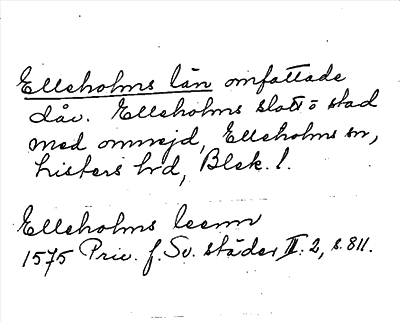 Elleholms län omfattade
dåv. Elleholms slott o stad
med omnejd, Elleholms sn,
Listers hd, Blek. l.
Elleholms leenn
1575 Priv. f. Sv. städer II: 2, s. 811.